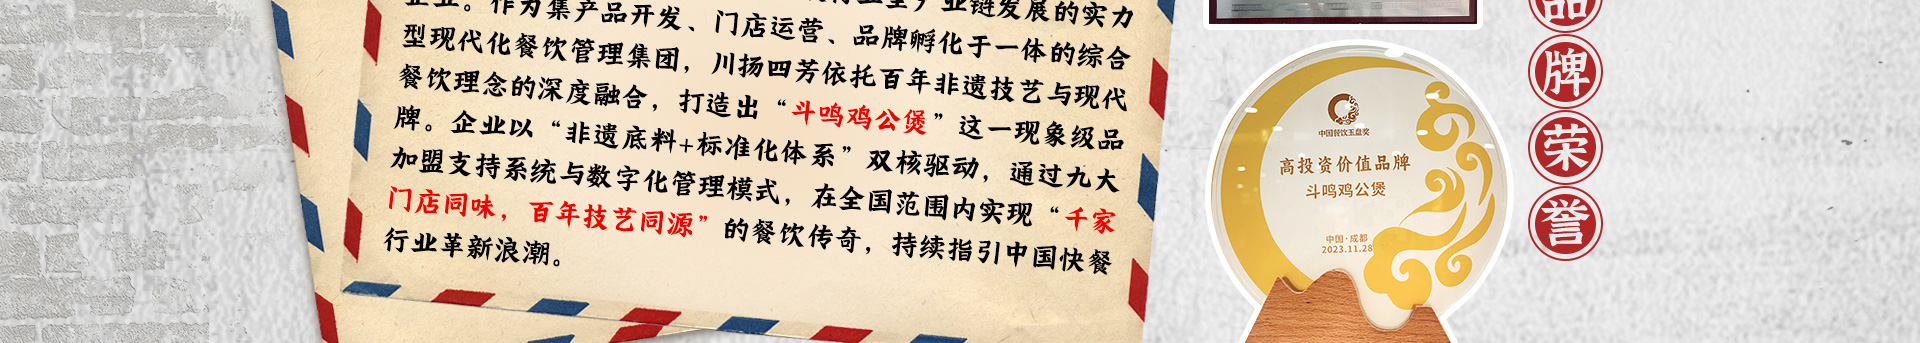 企业。作为集产品开发、门店运营、品牌孵化于一体的综合
型现代化餐饮管理集团，川扬四芳依托百年非遗技艺与现代
餐饮理念的深度融合，打造出“斗鸣鸡公煲”这一现象级品
牌。企业以“非遗底料+标准化体系”双核驱动，通过九大
加盟支持系统与数字化管理模式，在全国范围内实现“千家
门店同味，百年技艺同源”的餐饮传奇，持续指引中国快餐
行业革新浪潮。
中国餐饮玉盘奖
高投资价值品牌
斗鸣鸡公煲
中国·成都
2023.11.28
品牌荣誉